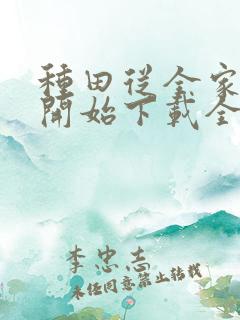 種田從全家
開始下載全
李忠志
未經同意禁止轉載